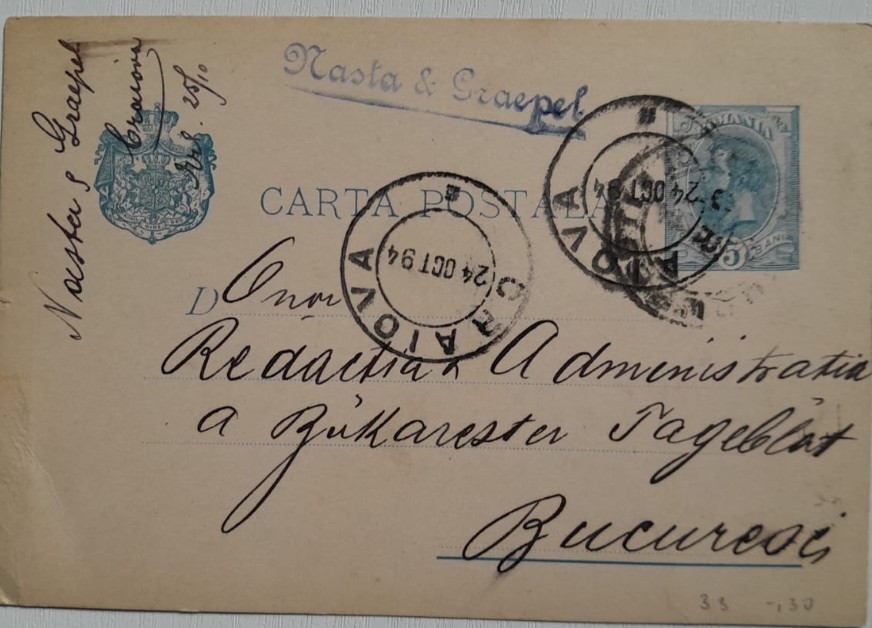 Nasta & Graepel
Craiova
25/10
Nasta & Graepel
CARTA POSTALA
ROMANIA
5 BANI
CRAIOVA
24 OCT 94
CRAIOVA
24 OCT 94
D Onor
Redactia & Administratia
a Bükarester Tageblat
Bucuresci
33 -,30